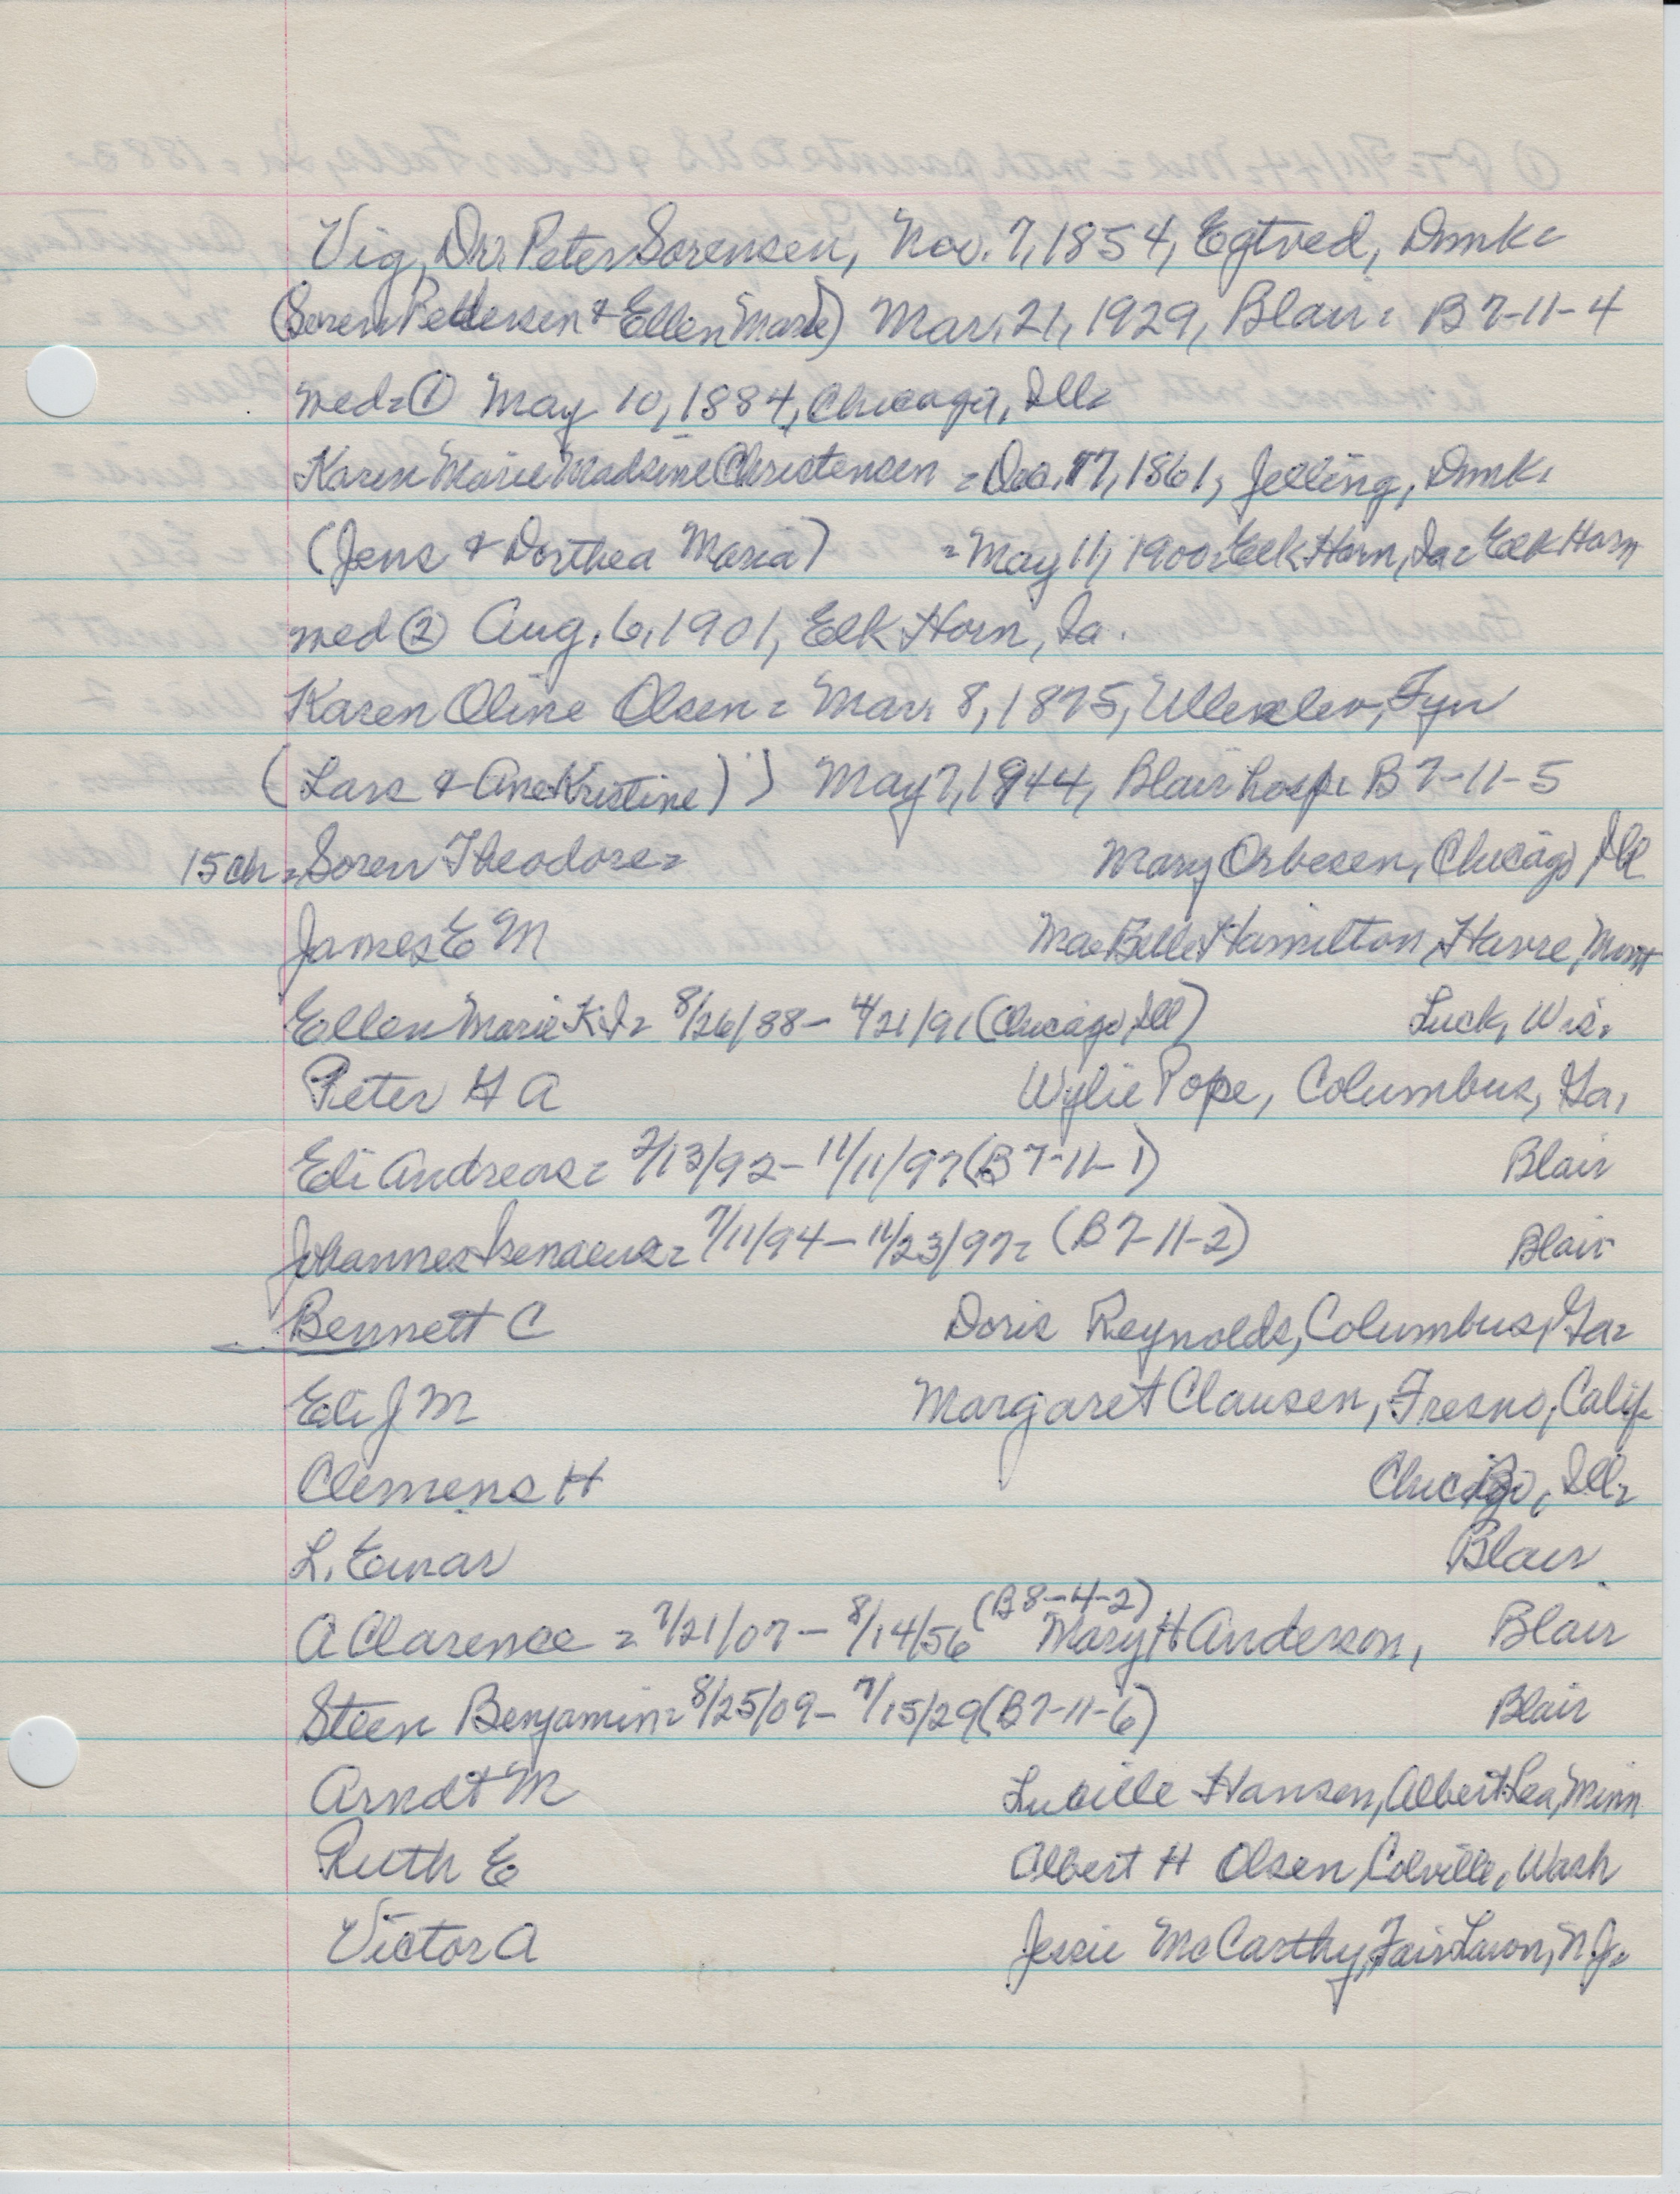 Vig, Dr. Peter Sorensen, Nov. 7, 1854, Egtved, Dmk=
(Soren Pedersen & Ellen Marie) Mar. 21, 1929, Blair= B 7-11-4
med=① May 10, 1884, Chicago, Ill=
Karen Marie Madsine Christensen = Dec. 17, 1861, Jelling, Dmk=
(Jens & Dorthea Maria) = May 11, 1900= Elk Horn, Ia= Elk Horn
med ② Aug. 6, 1901, Elk Horn, Ia.
Karen Oline Olsen= Mar. 8, 1875, Ullerslev, Fyn
(Lars & Ane Kristine) ) May 7, 1944, Blair hosp= B 7-11-5
15 ch= Soren Theodore= Mary Orbesen, Chicago, Ill
James E M Mae Belle Hamilton, Havre, Mont
Ellen Marie K J= 8/26/88 - 4/21/91 (Chicago, Ill) Luck, Wis.
Peter H A Wylie Pope, Columbus, Ga.
Eli Andreas= 2/13/92 - 11/11/97 (B 7-11-1) Blair
Johannes Irenaeus= 7/11/94 - 11/23/97= (B 7-11-2) Blair
Bennett C Doris Reynolds, Columbus, Ga=
Eli J M Margaret Clausen, Fresno, Calif
Clemens H Chicago, Ill=
L. Einar Blair
A Clarence = 7/21/07 - 8/14/56 (B 8-4-2) Mary H Anderson, Blair
Steen Benjamin= 8/25/09 - 7/15/29 (B 7-11-6) Blair
Arndt M Lucille Hansen, Albert Lea, Minn
Ruth E Albert H Olsen, Colville, Wash
Victor A Jessie McCarthy, Fair Lawn, N.J.=